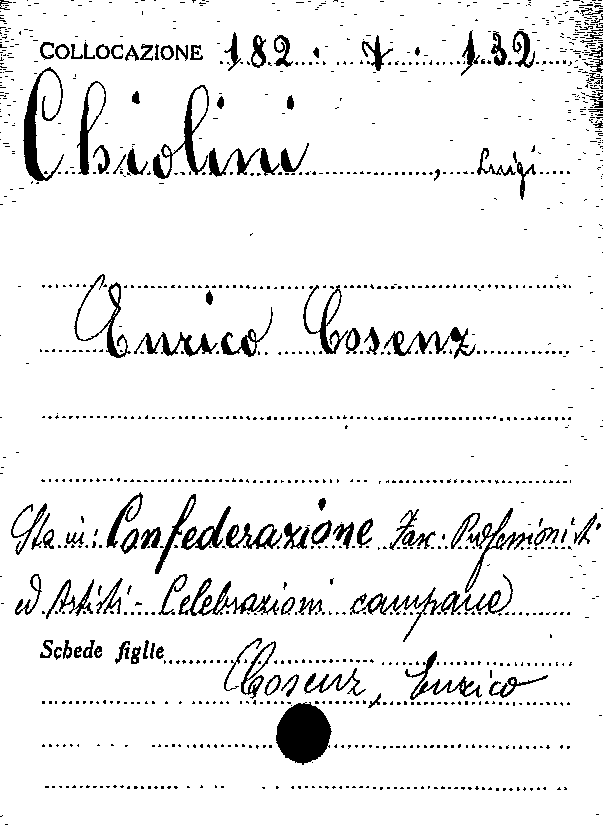 COLLOCAZIONE 182. 7. 132
Chiolini, Luigi
Enrico Cosenz
Sta in: Confederazione Fasc. Professionisti
ed Artisti - Celebrazioni campane
Schede figlie
Cosenz, Enrico